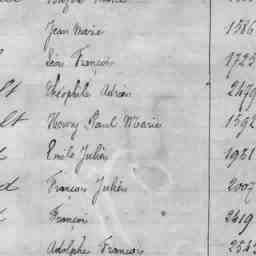 Jean Marie 1586
Léon François 1725
lt Théophile Adrien 2479
lt Henry Paul Marie 1592
Emile Julien 1981
d François Julien 2007
François 2419
Adolphe François